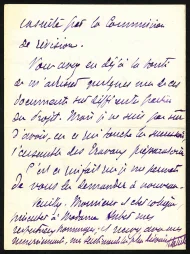 ensuite par la Commission
de révision.
Vous avez eu déjà la bonté
de m'adresser quelques uns de ces
documents sur différentes parties
du Projet. Mais je ne suis pas sûr
d'avoir, en ce qui touche la
l'ensemble des Travaux préparatoires
C'est ce qui fait que je me permets
de vous les demander à nouveau.
Veuillez, Monsieur et cher collègue
présenter à Madame mes
respectueux hommages, et
mes sentiments les plus dévoués